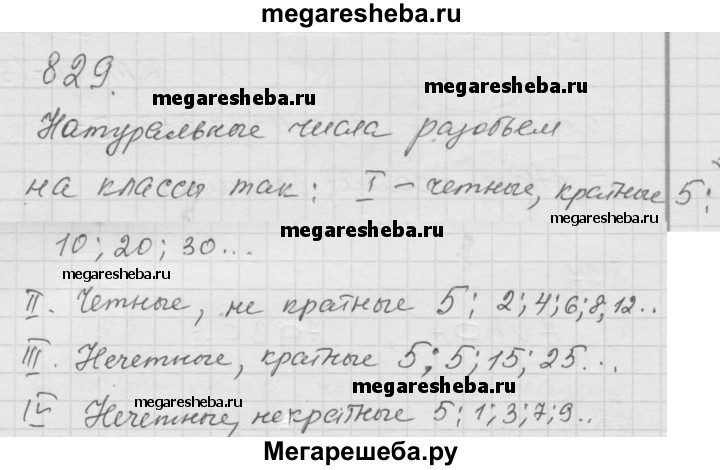 megaresheba.ru
829.
megaresheba.ru megaresheba.ru
Натуральные числа разобьем
на классы так: I – четные, кратные 5:
megaresheba.ru megaresheba.ru
10; 20; 30...
megaresheba.ru megaresheba.ru
II. Четные, не кратные 5; 2; 4; 6; 8; 12..
III. Нечетные, кратные 5; 5; 15; 25...
megaresheba.ru megaresheba.ru
IV Нечетные, некратные 5; 1; 3; 7; 9..
Мегарешеба.ру